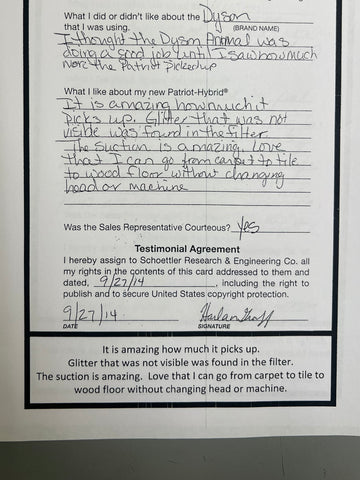 What I did or didn't like about the Dyson
that I was using. (BRAND NAME)
I thought the Dyson Animal was
doing a good job until I saw how much
more the Patriot picked up
What I like about my new Patriot-Hybrid®
It is amazing how much it
picks up. Glitter that was not
visible was found in the filter.
The suction is amazing. Love
that I can go from carpet to tile
to wood floor without changing
head or machine
Was the Sales Representative Courteous? yes
Testimonial Agreement
I hereby assign to Schoettler Research & Engineering Co. all
my rights in the contents of this card addressed to them and
dated, 9/27/14, including the right to
publish and to secure United States copyright protection.
9/27/14 Harlan
DATE SIGNATURE
It is amazing how much it picks up.
Glitter that was not visible was found in the filter.
The suction is amazing. Love that I can go from carpet to tile to
wood floor without changing head or machine.